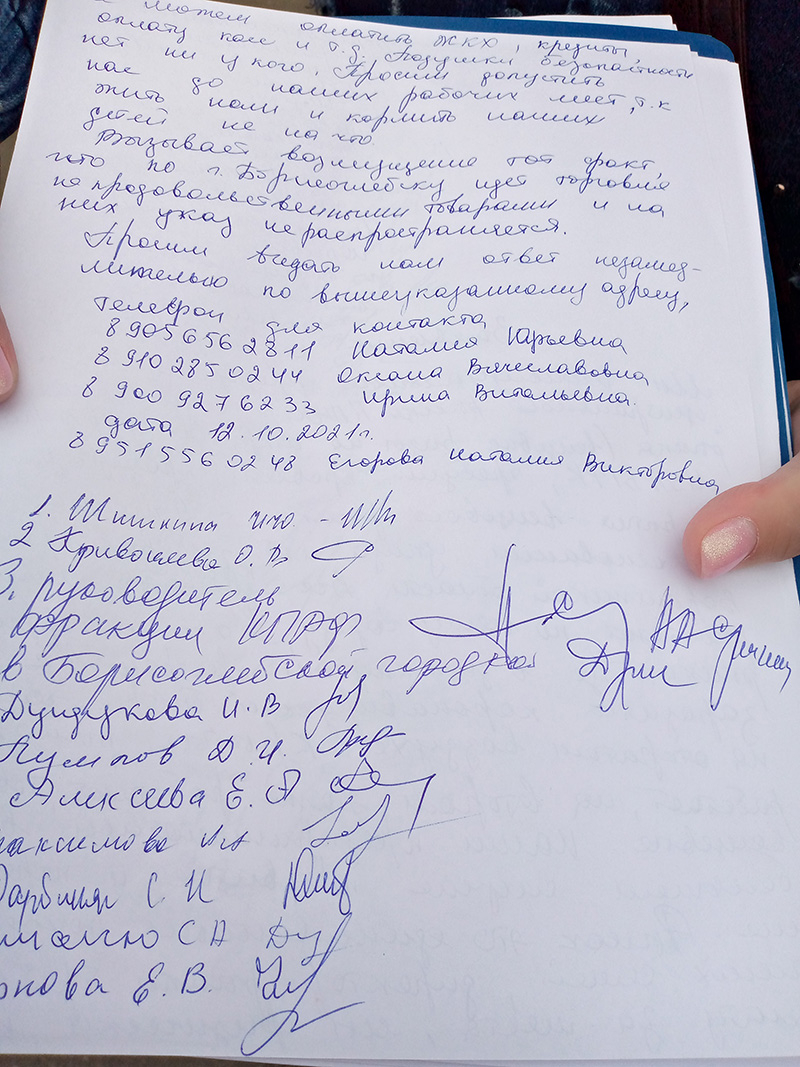 можем оплатить ЖКХ, кредиты,
оплату касс и т.д. Подушки безопастности
нет ни у кого. Просим допустить
нас до наших рабочих мест, т.к
жить нам и кормить наших
детей не на что.
Вызывает возмущение тот факт,
что по г. Борисоглебску идет торговля
не продовольственными товарами и на
них указ не распространяется.
Просим выдать нам ответ незамед-
лительно по вышеуказанному адресу,
телефон для контакта
8 905 656 2811 Наталия Юрьевна
8 910 285 0244 Оксана Вячеславовна
8 900 927 6233 Ирина Витальевна.
дата 12.10.2021г.
8 951 556 0248 Егорова Наталия Викторовна
1.
2 О.В
3. руководитель
фракции КПРФ
в Борисоглебской городской
Дундукова И. В
Д. И.
Алексеева Е. А
С. Н
С А
Е. В.